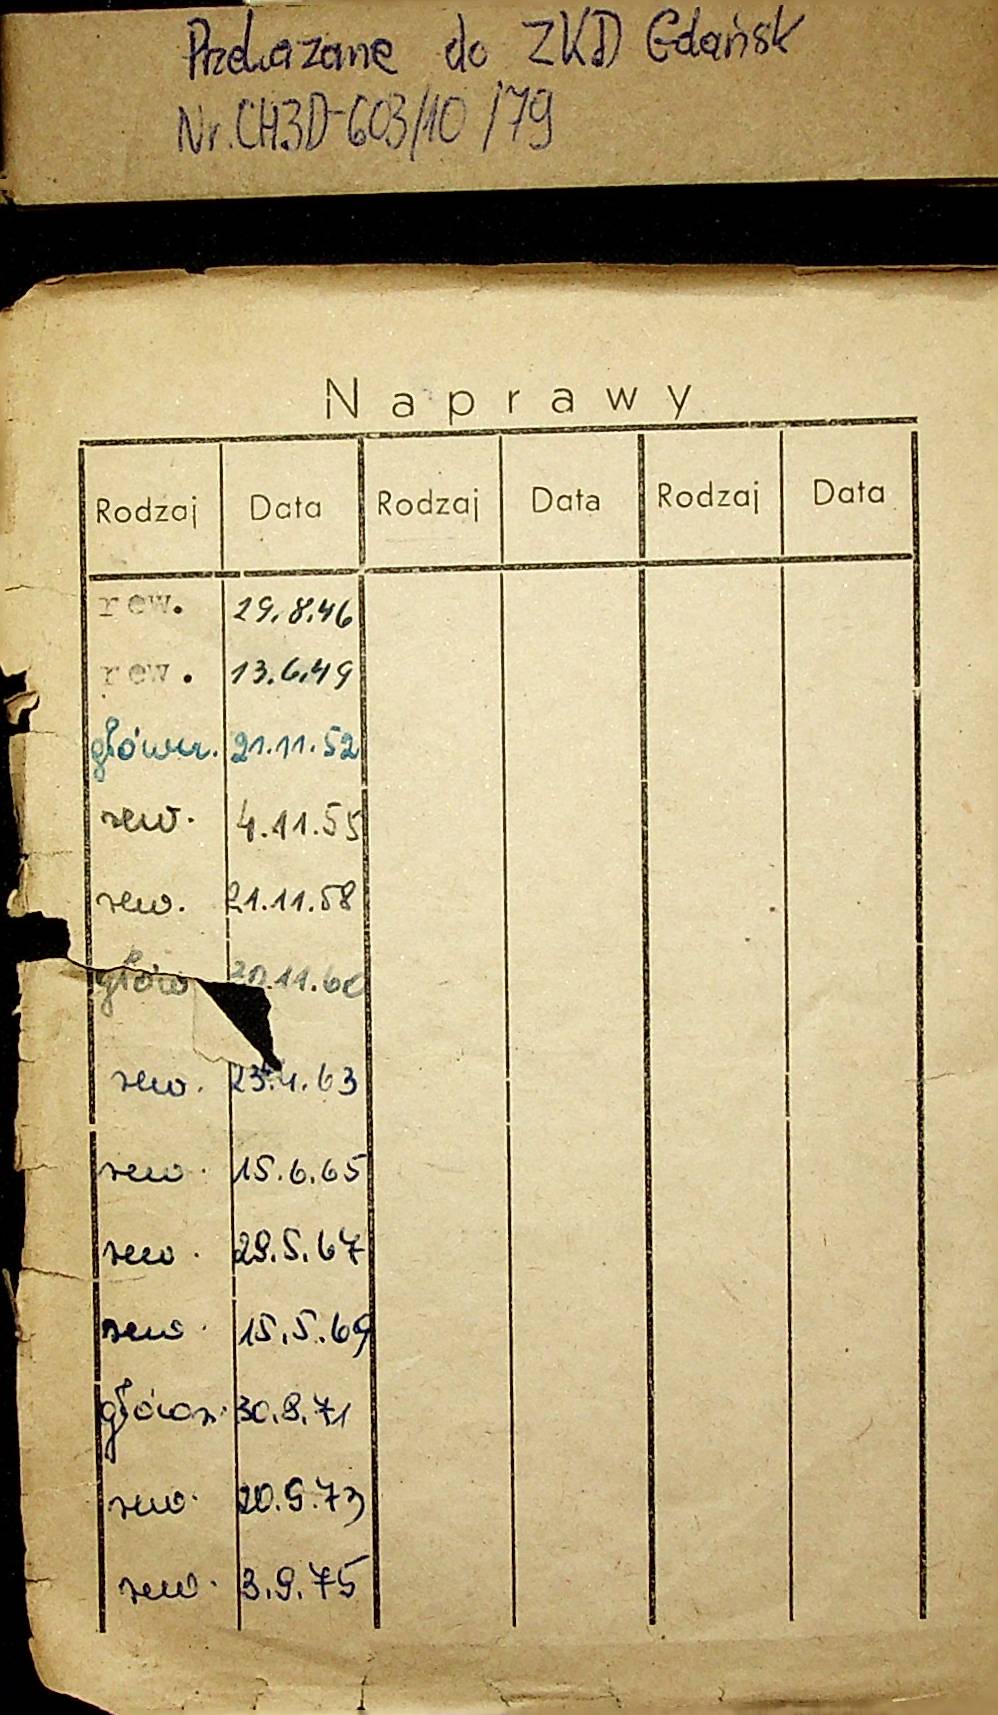 Przekazane do ZKD Gdańsk
Nr. CH3D-603/10/79
Naprawy
Rodzaj Data Rodzaj Data Rodzaj Data
rew. 29.8.46
rew. 13.6.49
główn. 21.11.52
rew. 4.11.55
rew. 21.11.58
głów
rew. 23.4.63
rew. 15.6.65
rew. 29.5.67
rew. 15.5.69
główn. 30.8.71
rew. 20.9.73
rew. 3.9.75